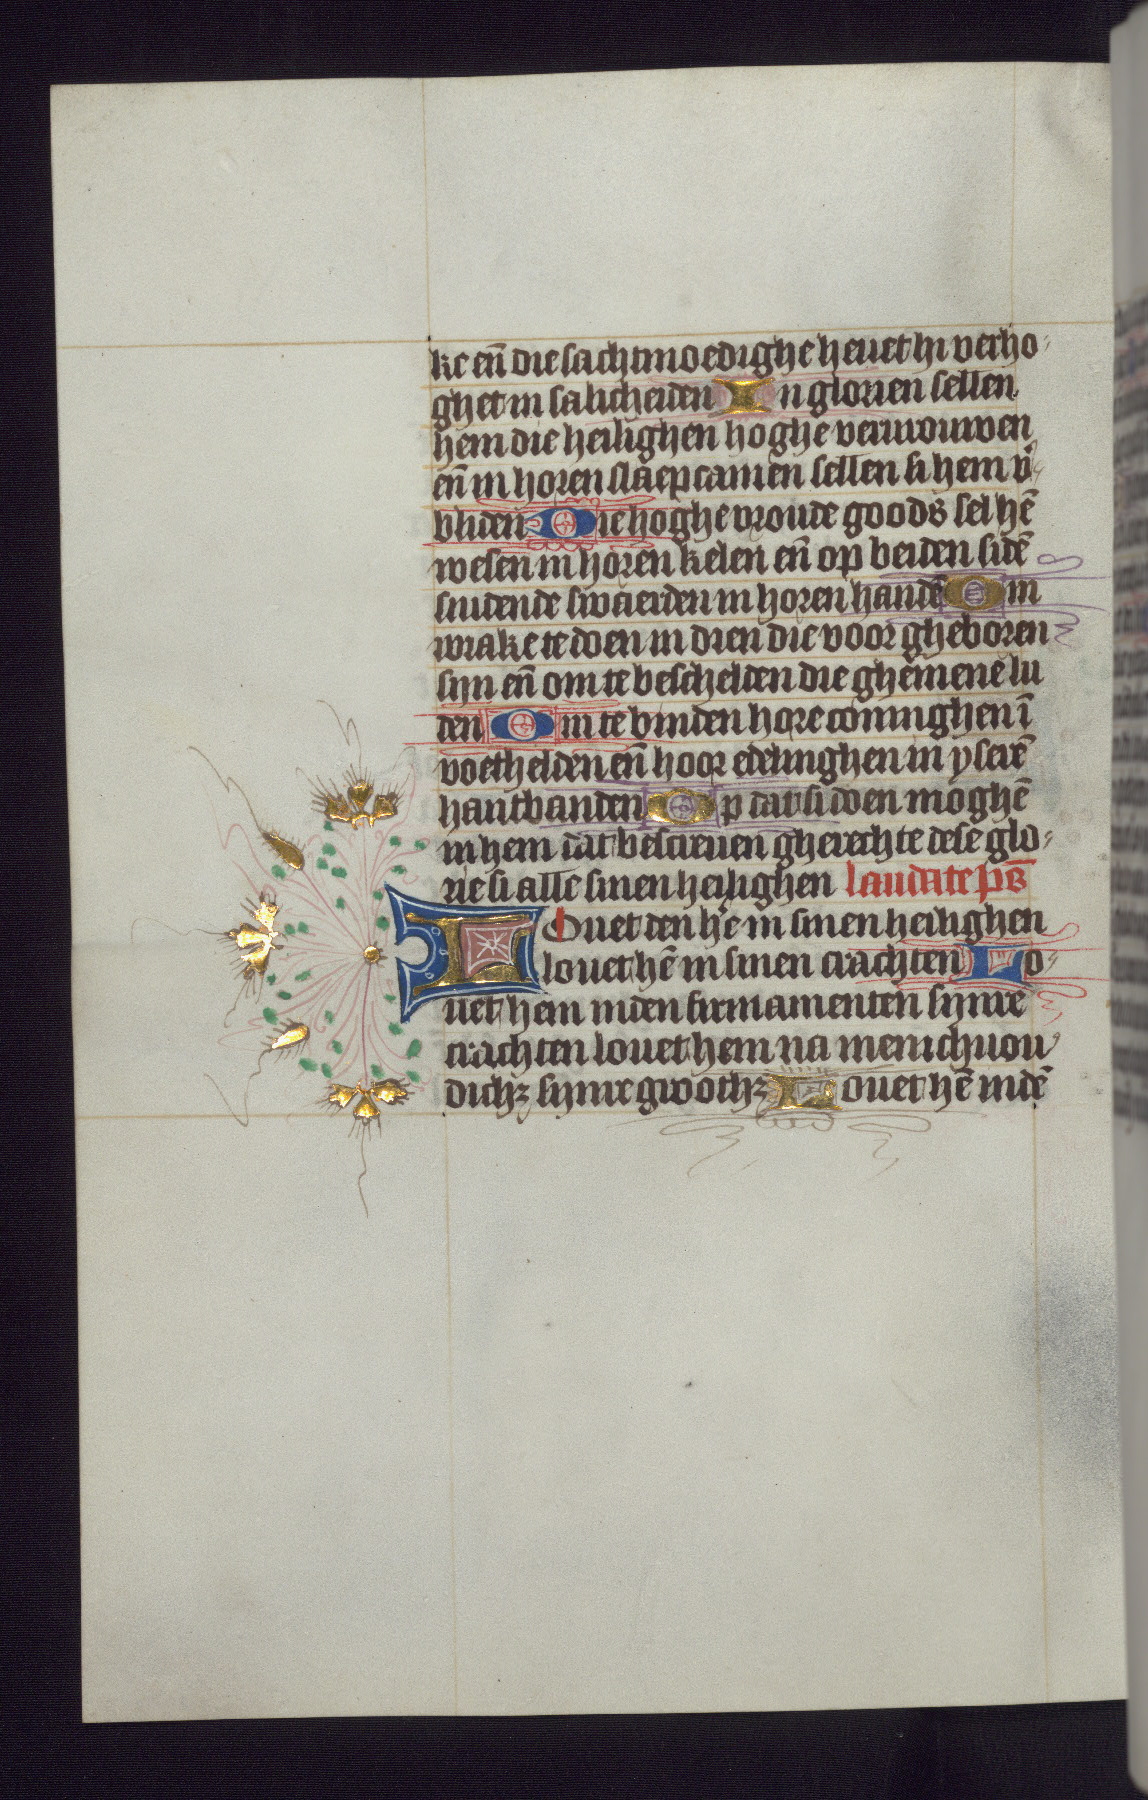 ke en̄ die sachtmoedighe heuet hi verho⸗
ghet in salicheiden In glorien sellen
hem die heilighen hoghe vervrouwen
en̄ in horen slaepcameren sellen si hem v̄
bliden Die hoghe vroude goods sel hē
wesen in horen kelen en̄ op beiden sidē
snidende swaerden in horen handē Om
wrake te doen in dien die voor gheboren
syn en̄ om te beschelden die ghemene lu
den Om te binden hore coninghen ī
voethelden en̄ hoor edelinghen in yserē
hantbanden Op dat si doen moghē
in hem dat bescreuen gherechte dese glo⸗
rie si alle sinen heilighen laudate ps̄
Louet den he in sinen heilighen
louet hē in sinen crachten Lo⸗
uet hem inden firmamenten synre
crachten louet hem na menichuou
dichz synre groothz Louet hē indē